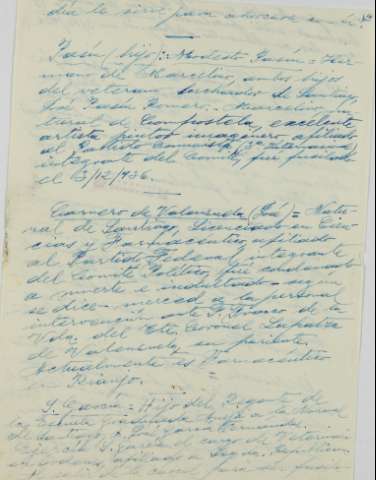 día le sirve para ahorcarse
Pasín (hijo): Modesto Pasín = Her-
mano de Marcelino, ambos hijos
del veterano luchador de Santiago,
José Pasín Romero. Marcelino, na-
tural de Compostela, excelente
artista pintor imaginero, afiliado
al Partido Comunista (3ª Internacional)
integrante del Comité, fué fusilado
el 3/12/936.
Carnero de Valenzuela (José) = Natu-
ral de Santiago, Licenciado en Cien-
cias y Farmacéutico, afiliado
al Partido Federal, integrante
del Comité Político, fué condenado
a muerte e indultado - según
se dice - merced a la personal
intervención ante F. Franco de la
Vda. del Tte. Coronel
de Valenzuela, su pariente.
Actualmente es Farmacéutico
en
S. García = Hijo del Regente de
la Escuela Graduada Aneja a la Normal
de Santiago, D. José García Fernández.
Ejercía S. García el cargo de Veterina-
rio